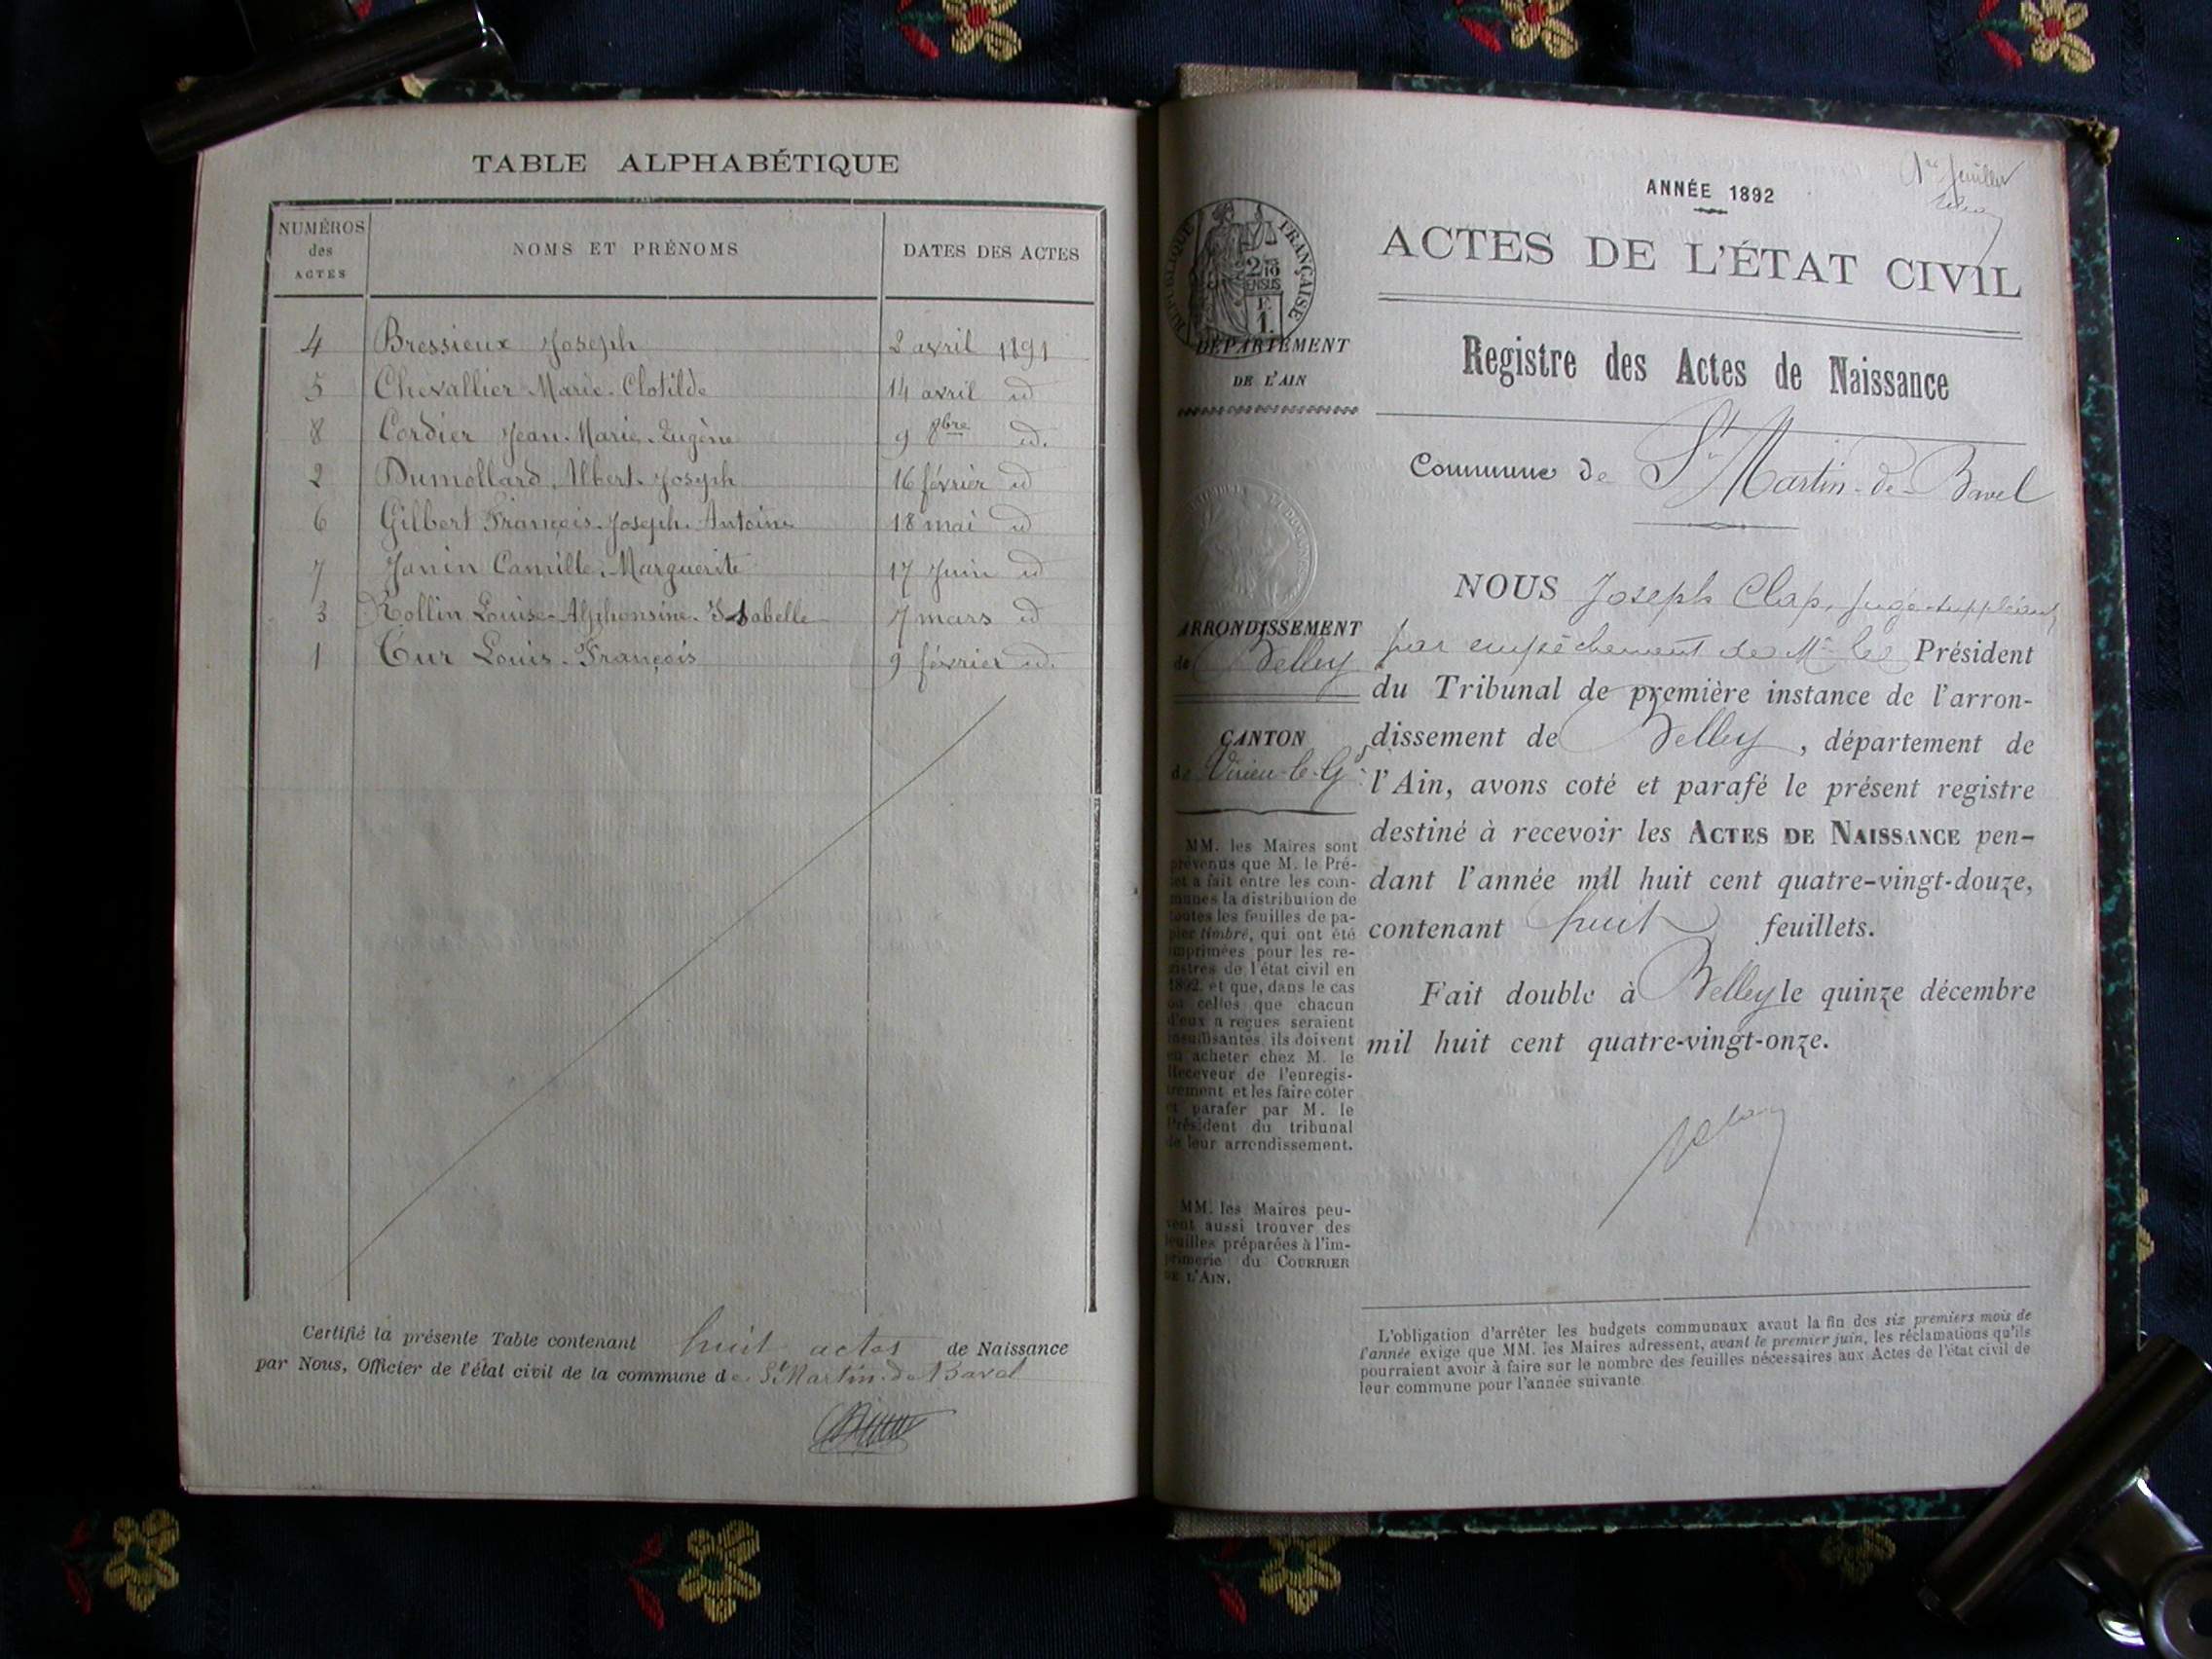 TABLE ALPHABÉTIQUE
NUMÉROS des ACTES
NOMS ET PRÉNOMS
DATES DES ACTES
4 Bressieux Joseph 2 avril 1891
5 Chevallier Marie-Clotilde 14 avril id
8 Cordier Jean-Marie-Eugène 9 8bre id.
2 Dumollard Albert-Joseph 16 février id
6 Gilbert François-Joseph-Antoine 18 mai id
7 Janin Camille-Marguerite 17 Juin id
3 Rollin Louise-Alphonsine-Isabelle 7 mars id
1 Tur Louis-François 9 février id.
Certifié la présente Table contenant huit actes de Naissance
par Nous, Officier de l'état civil de la commune de St Martin-de-Bavel
1er feuillet
ANNÉE 1892
ACTES DE L'ÉTAT CIVIL
RÉPUBLIQUE FRANÇAISE
2/10 EN SUS
1.
DÉPARTEMENT
DE L'AIN
Registre des Actes de Naissance
Commune de St Martin-de-Bavel
ARRONDISSEMENT
de Belley
CANTON
de Virieu-le-Gd
MM. les Maires sont
prévenus que M. le Pré-
fet a fait entre les com-
munes la distribution de
toutes les feuilles de pa-
pier timbré, qui ont été
imprimées pour les re-
gistres de l'état civil en
1892, et que, dans le cas
où celles que chacun
d'eux a reçues seraient
insuffisantes, ils doivent
en acheter chez M. le
Receveur de l'enregis-
trement et les faire coter
et parafer par M. le
Président du tribunal
de leur arrondissement.
MM. les Maires peu-
vent aussi trouver des
feuilles préparées à l'im-
primerie du COURRIER
DE L'AIN.
NOUS Joseph Clap, juge-suppléant,
par empêchement de Mr le Président
du Tribunal de première instance de l'arron-
dissement de Belley, département de
l'Ain, avons coté et parafé le présent registre
destiné à recevoir les ACTES DE NAISSANCE pen-
dant l'année mil huit cent quatre-vingt-douze,
contenant huit feuillets.
Fait double à Belley le quinze décembre
mil huit cent quatre-vingt-onze.
L'obligation d'arrêter les budgets communaux avant la fin des six premiers mois de
l'année exige que MM. les Maires adressent, avant le premier juin, les réclamations qu'ils
pourraient avoir à faire sur le nombre des feuilles nécessaires aux Actes de l'état civil de
leur commune pour l'année suivante